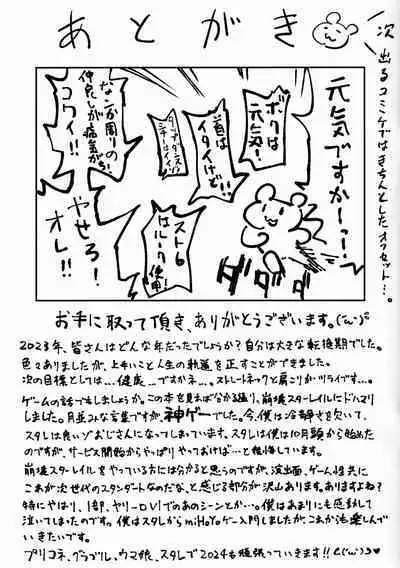 あとがき
次出るコミケではきちんとしたオフセット…。
元気ですかーっ!
ボクは元気!
首はイタイけど!!
スト6はルーク使用!
なンか周りの仲良しが病気がち!
コワイ!!
やせろ!
オレ!!
ダダダ
お手に取って頂き、ありがとうございます。
2023年、皆さんはどんな年だったでしょうか?自分は大きな転換期でした。
色々ありましたが、上手いこと人生の軌道を正すことができました。
次の目標としては…健康…ですかネ…。ストレートネックと肩こりがツライです…。
ゲームの話でもしましょうか。この本を見れば分かる通り、崩壊スターレイルにドハマリ
しました。月並みな言葉ですが、神ゲーでした。今、僕は冷静さを欠いて、
スタレは良いゾおじさんになってしまっています。スタレは僕は10月頃から始めた
のですが、サービス開始からやっぱりやっておけば…と後悔しています。
崩壊スターレイルをやっている方には分かると思うのですが、演出面、ゲーム性共に
これが次世代のスタンダートなのだな、と感じる部分が沢山あります。ありますよね?
特にやはり、1部、ヤリーロⅥでのあのシーンとか…。僕はあまりにも感動して
泣いてしまったのです。僕はスタレからmiHoYoゲー入門しましたが、これからも楽しんで
いきたいです。
プリコネ、グラブル、ウマ娘、スタレで2024も頑張っていきます!!